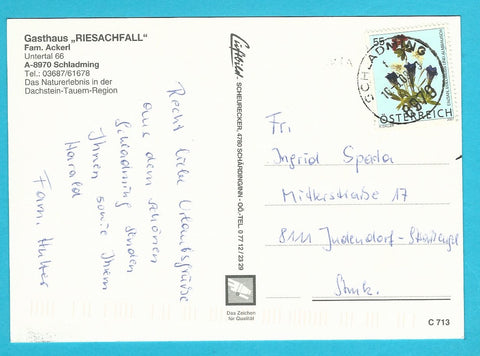 Gasthaus „RIESACHFALL"
Fam. Ackerl
Untertal 66
A-8970 Schladming
Tel.: 03687/61678
Das Naturerlebnis in der
Dachstein-Tauern-Region
Recht liebe Urlaubsgrüße
aus dem schönen
Schladming senden
Ihnen sowie Ihrem
Harald
Fam. Hutter
Luftbild SCHEURECKER, 4780 SCHÄRDING/INN - OÖ - TEL. 0 77 12 / 23 29
Das Zeichen
für Qualität
55
SCHLADMING
8970
ÖSTERREICH
Fr.
Ingrid Spada
Mitterstraße 17
8111 Judendorf-Straßengel
Stmk.
C 713